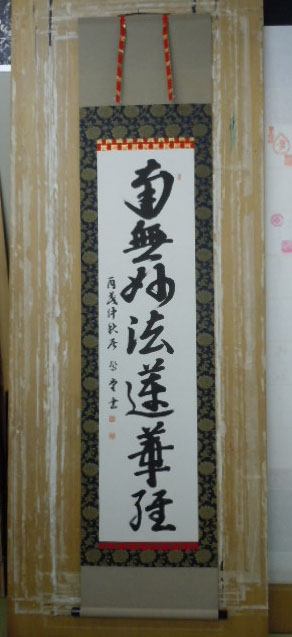 南無妙法蓮華経
丙戌仲秋吉
書